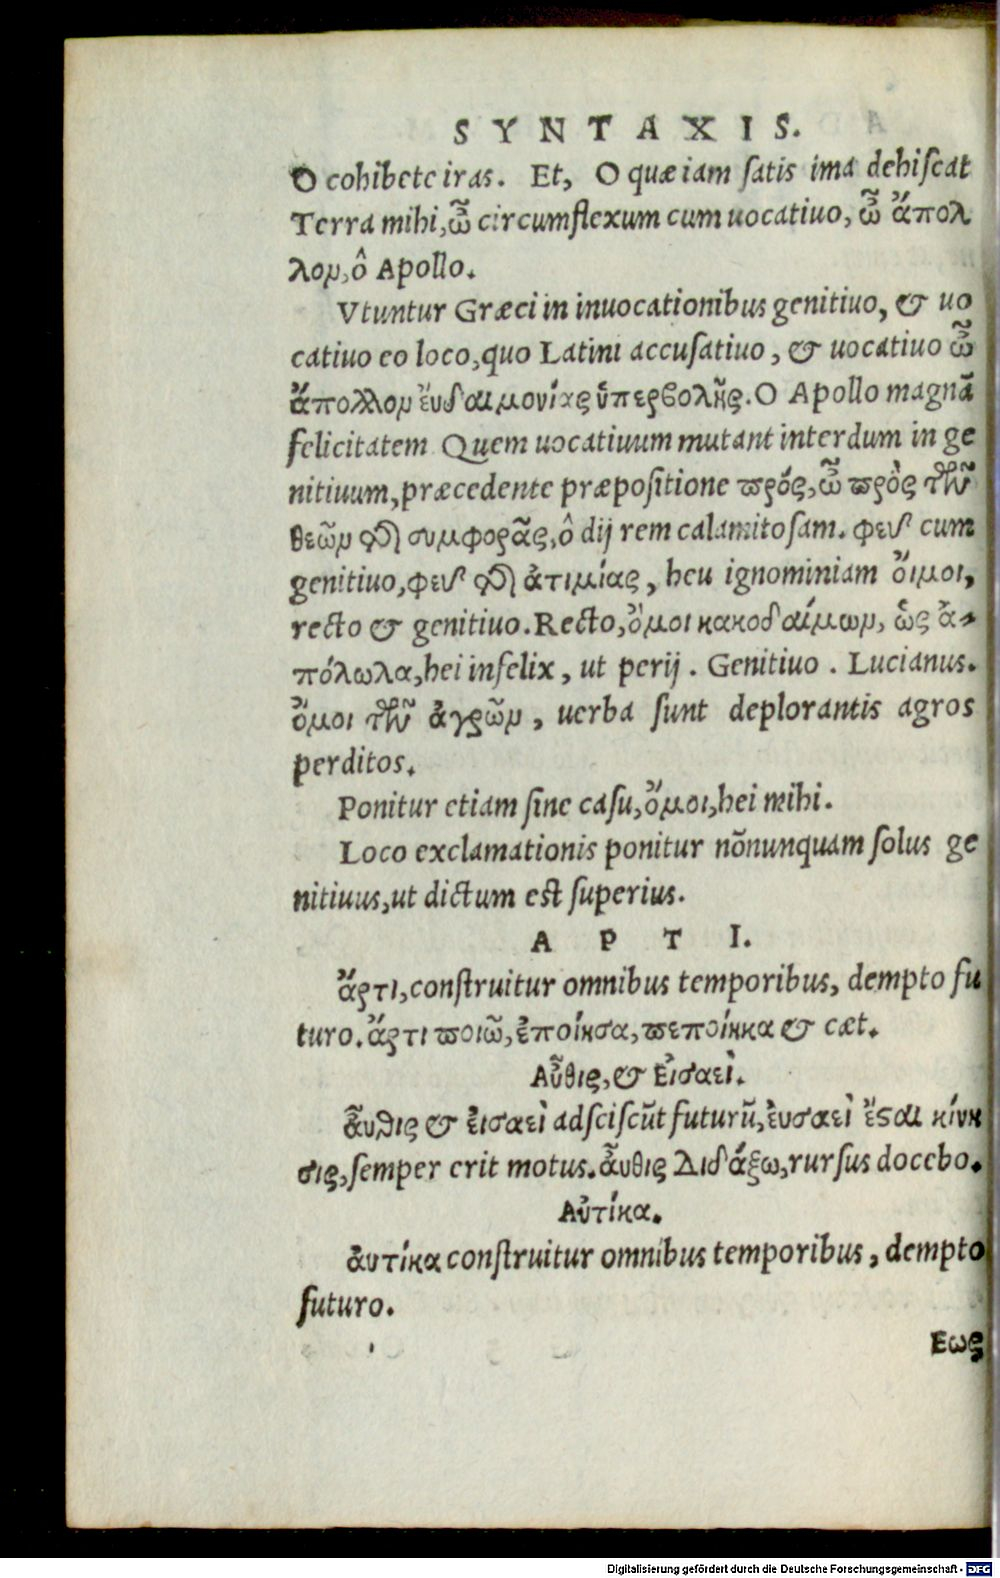 SYNTAXIS.
O cohibete iras. Et, O quæ iam satis ima dehiscat
Terra mihi, ὦ circumflexum cum uocatiuo, ὦ ἄπολ
λον, ô Apollo.
Vtuntur Græci in inuocationibus genitiuo, & uo
catiuo eo loco, quo Latini accusatiuo, & uocatiuo ὦ
ἄπολλον ἐυδαιμονίας ὑπερβολῆς. O Apollo magnā
felicitatem Quem uocatiuum mutant interdum in ge
nitiuum, præcedente præpositione πρός, ὦ πρὸς τῶν
θεῶν τῆς συμφορᾶς, ô dij rem calamitosam. φεῦ cum
genitiuo, φεῦ τῆς ἀτιμίας, heu ignominiam ὄιμοι,
recto & genitiuo. Recto, ὄμοι κακοδαίμων, ὡς ἀ-
πόλωλα, hei infelix, ut perij. Genitiuo. Lucianus.
ὄμοι τῶν ἀγρῶν, uerba sunt deplorantis agros
perditos.
Ponitur etiam sine casu, ὄμοι, hei mihi.
Loco exclamationis ponitur nōnunquam solus ge
nitiuus, ut dictum est superius.
ΑΡΤΙ.
ἄρτι, construitur omnibus temporibus, dempto fu
turo. ἄρτι ποιῶ, ἐποίησα, πεποίηκα & cæt.
Αὖθις, & Εἰσαεὶ.
ἆυθις & ἐισαεὶ adsciscūt futurū, ἐυσαεὶ ἔσαι κίνη
σις, semper erit motus. ἆυθις Διδάξω, rursus docebo.
Αὐτίκα.
ἀυτίκα construitur omnibus temporibus, dempto
futuro.
Εως
Digitalisierung gefördert durch die Deutsche Forschungsgemeinschaft - DFG